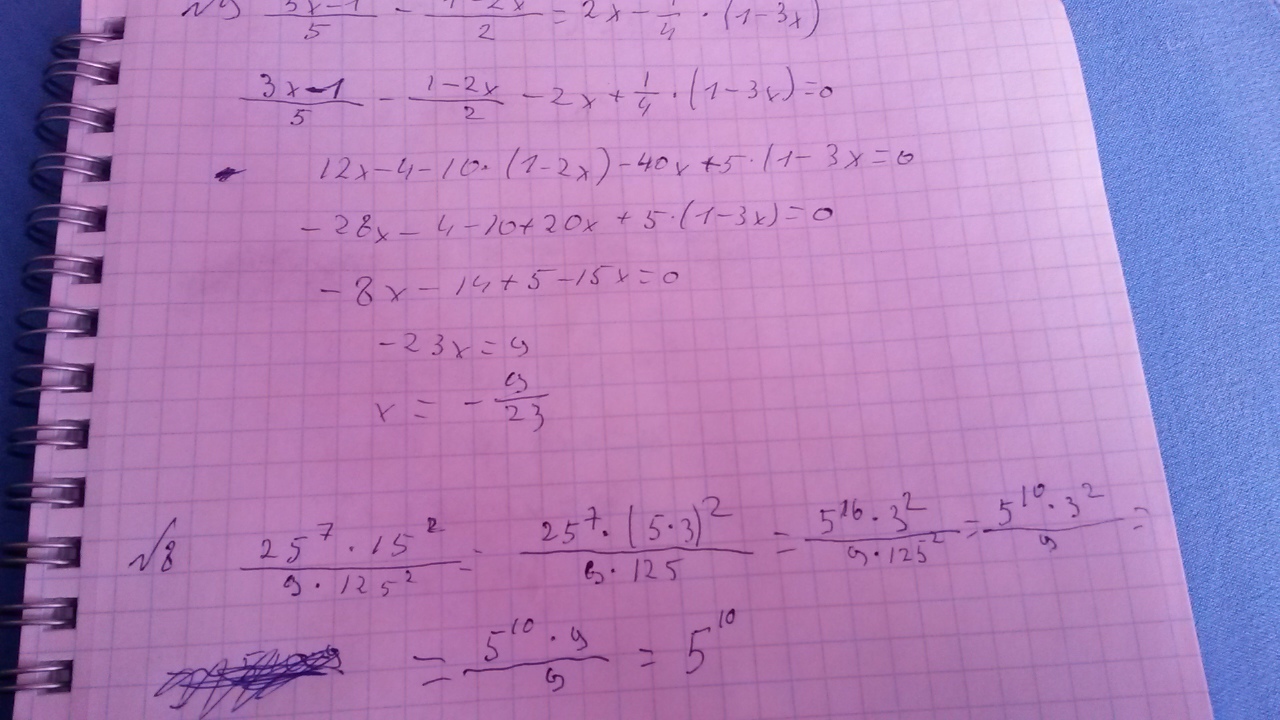 №9 (3x-1)/5 - (1-2x)/2 = 2x - 1/4 · (1-3x)
(3x-1)/5 - (1-2x)/2 - 2x + 1/4 · (1-3x) = 0
12x-4-10·(1-2x)-40x+5·(1-3x=0
-28x-4-10+20x+5·(1-3x)=0
-8x-14+5-15x=0
-23x=9
x = -9/23
№8 (25^7 · 15^2)/(9·125^2) = (25^7 · (5·3)^2)/(9·125) = (5^16 · 3^2)/(9·125^2) = (5^10 · 3^2)/9 =
= (5^10 · 9)/9 = 5^10